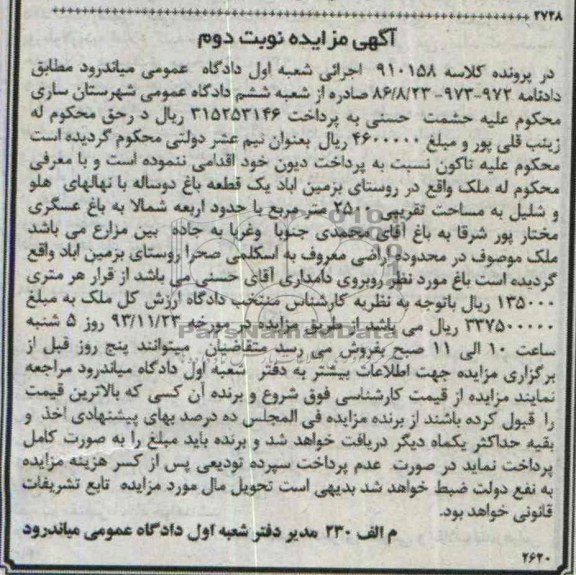 ۲۷۲۸
آگهی مزایده نوبت دوم
در پرونده کلاسه ۹۱۰۱۵۸ اجرائی شعبه اول دادگاه عمومی میاندرود مطابق
دادنامه ۹۷۲-۹۷۳-۸۶/۸/۲۳ صادره از شعبه ششم دادگاه عمومی شهرستان ساری
محکوم علیه حشمت حسنی به پرداخت ۳۱۵۲۵۳۱۴۶ ریال د رحق محکوم له
زینب قلی پور و مبلغ ۴۶۰۰۰۰۰ ریال بعنوان نیم عشر دولتی محکوم گردیده است
محکوم علیه تاکون نسبت به پرداخت دیون خود اقدامی ننموده است و با معرفی
محکوم له ملک واقع در روستای بزمین اباد یک قطعه باغ دوساله با نهالهای هلو
و شلیل به مساحت تقریبی ۲۵۰۰ متر مربع با حدود اربعه شمالا به باغ عسگری
مختار پور شرقا به باغ آقای محمدی جنوبا وغربا به جاده بین مزارع می باشد
ملک موصوف در محدوده اراضی معروف به اسکلمی صحرا روستای بزمین اباد واقع
گردیده است باغ مورد نظر روبروی دامداری آقای حسنی می باشد از قرار هر متری
۱۳۵۰۰۰ ریال باتوجه به نظریه کارشناس منتخب دادگاه ارزش کل ملک به مبلغ
۳۳۷۵۰۰۰۰۰ ریال می باشد از طریق مزایده در مورخه ۹۳/۱۱/۲۳ روز ۵ شنبه
ساعت ۱۰ الی ۱۱ صبح بفروش می رسد متقاضیان میتوانند پنج روز قبل از
برگزاری مزایده جهت اطلاعات بیشتر به دفتر شعبه اول دادگاه میاندرود مراجعه
نمایند مزایده از قیمت کارشناسی فوق شروع و برنده آن کسی که بالاترین قیمت
را قبول کرده باشند از برنده مزایده فی المجلس ده درصد بهای پیشنهادی اخذ و
بقیه حداکثر یکماه دیگر دریافت خواهد شد و برنده باید مبلغ را به صورت کامل
پرداخت نماید در صورت عدم پرداخت سپرده تودیعی پس از کسر هزینه مزایده
به نفع دولت ضبط خواهد شد بدیهی است تحویل مال مورد مزایده تابع تشریفات
قانونی خواهد بود.
م الف ۲۳۰ مدیر دفتر شعبه اول دادگاه عمومی میاندرود
۲۶۲۰
ParsNamadData